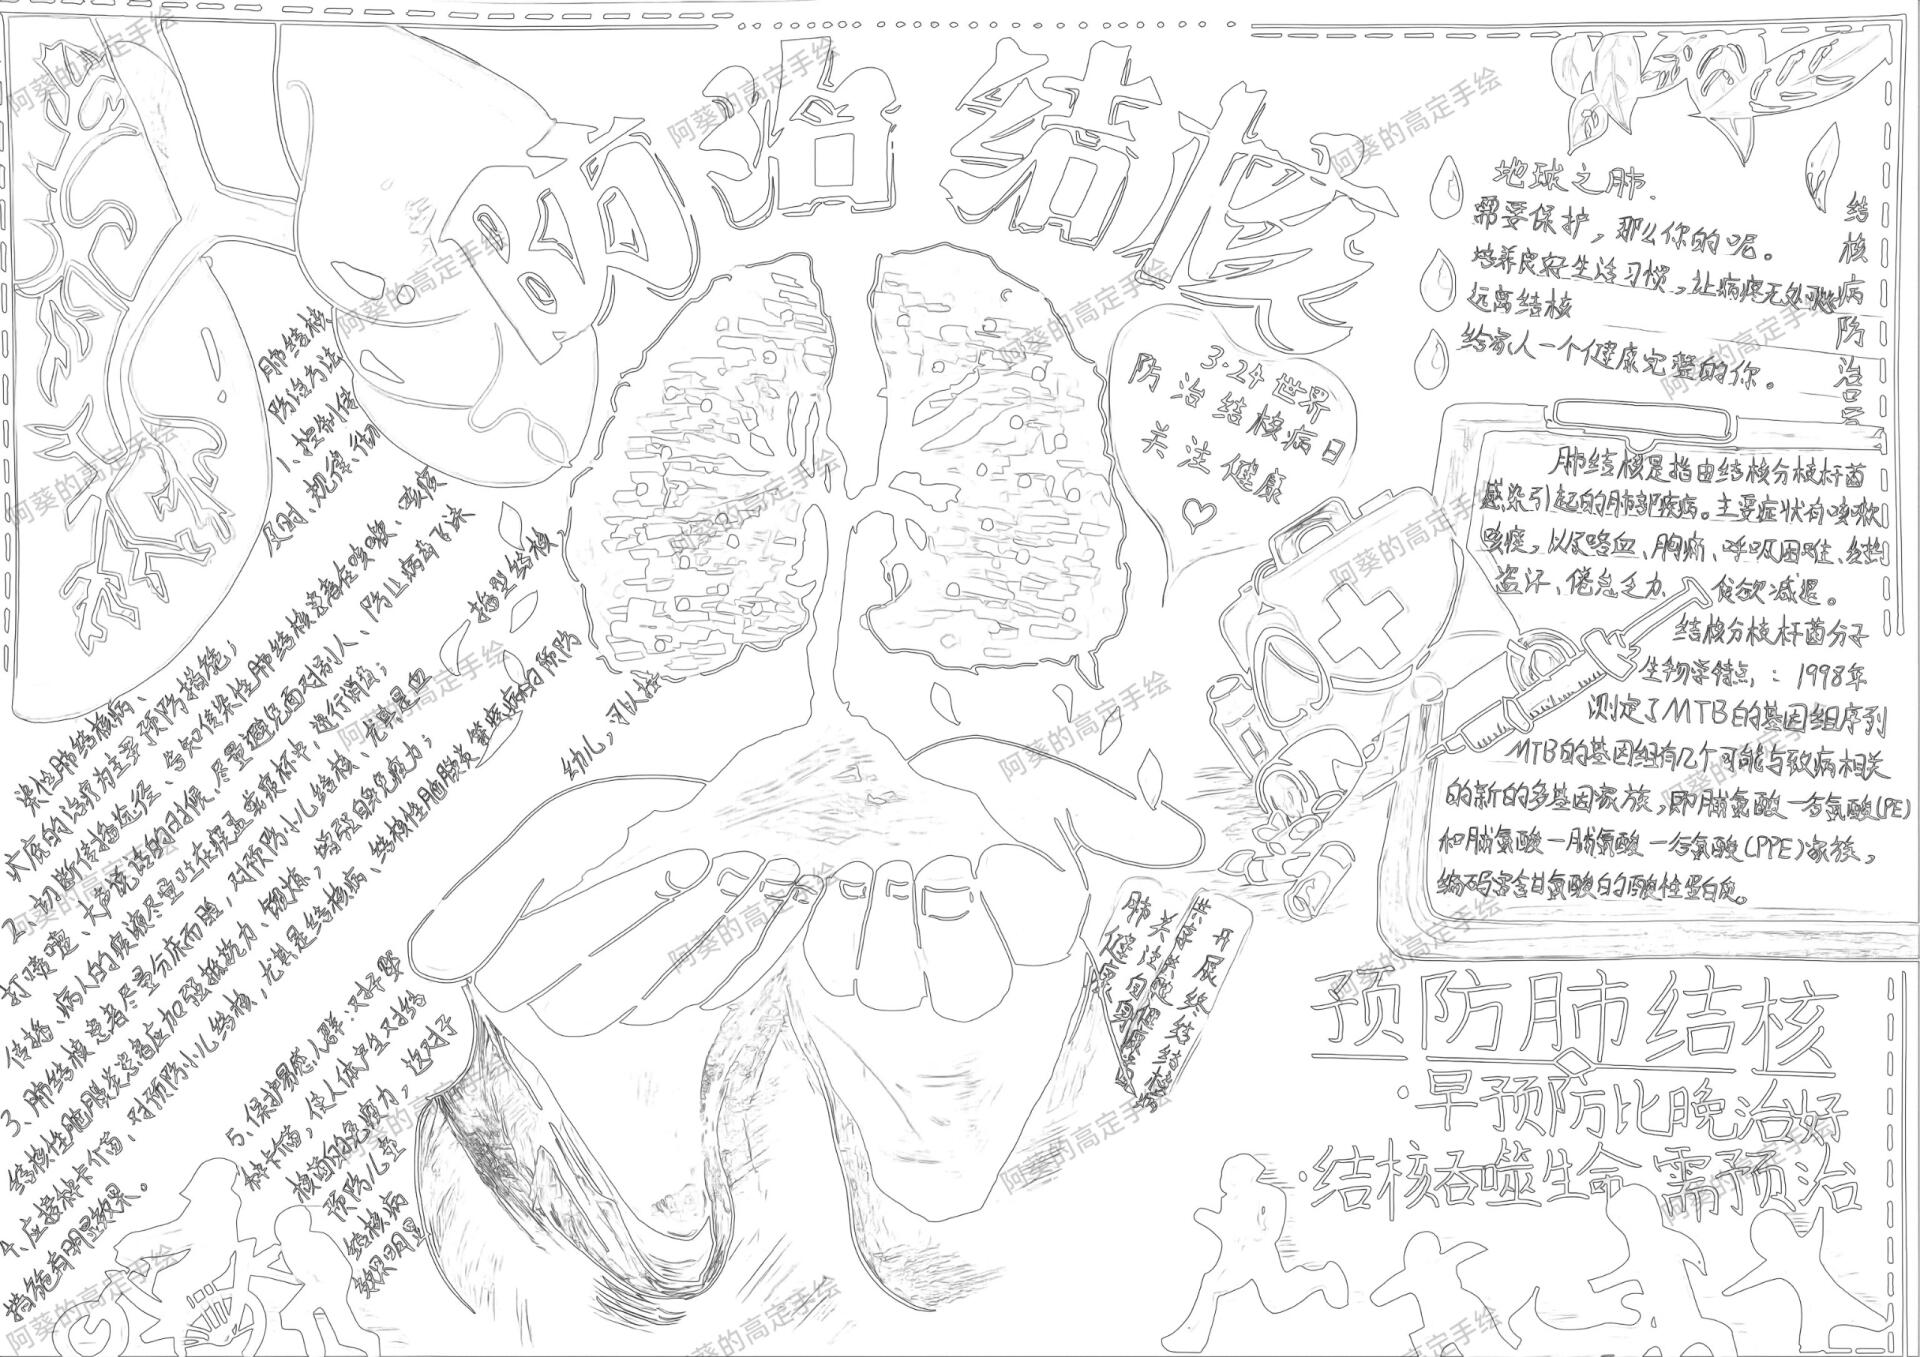 防治结核
地球之肺.
需要保护，那么你的呢。
培养良好生活习惯，让病疫无处可
远离结核
给家人一个健康完整的你。
结核病防治
3·24世界
防治结核病日
关注健康
肺结核是指由结核分枝杆菌
感染引起的肺部疾病。主要症状有咳嗽
咳痰，以及咯血、胸痛、呼吸困难、
盗汗、倦怠乏力、食欲减退。
结核分枝杆菌分子
生物学特点：1998年
测定了MTB的基因组序列
MTB的基因组有几个可能与致病相关
的新的多基因家族，即脯氨酸一谷氨酸(PE)
和脯氨酸一脯氨酸一谷氨酸(PPE)家族，
编码富含甘氨酸的酸性蛋白质。
肺结核
防治方法
1、控制传
染性肺结核病、
及时、规律、彻
底的治疗为主要预防措施；
2、切断传播途径、告知传染性肺结核患者在咳嗽、咳痰
打喷嚏、大声说话的时候，尽量避免面对别人、防止病菌飞沫
传播、病人的痰液尽量吐在痰盂或痰杯中，进行消毒；
3、肺结核患者尽量分床而睡，对预防小儿结核、尤其是血
结核性脑膜炎患者应加强抵抗力、锻炼，增强自身免疫力；
4、应接种卡介苗、对预防小儿结核，尤其是结核病、结核性脑膜炎等疾病的预防
措施有明显效果。
5、保护易感人群：对于婴
幼儿，可以接
种卡介苗，使人体产生对结
核菌的免疫力，这对于
预防儿童
结核病
效果明显
关注肺健康
预防肺结核
·早预防比晚治好
·结核吞噬生命 需预治
阿葵的高定手绘